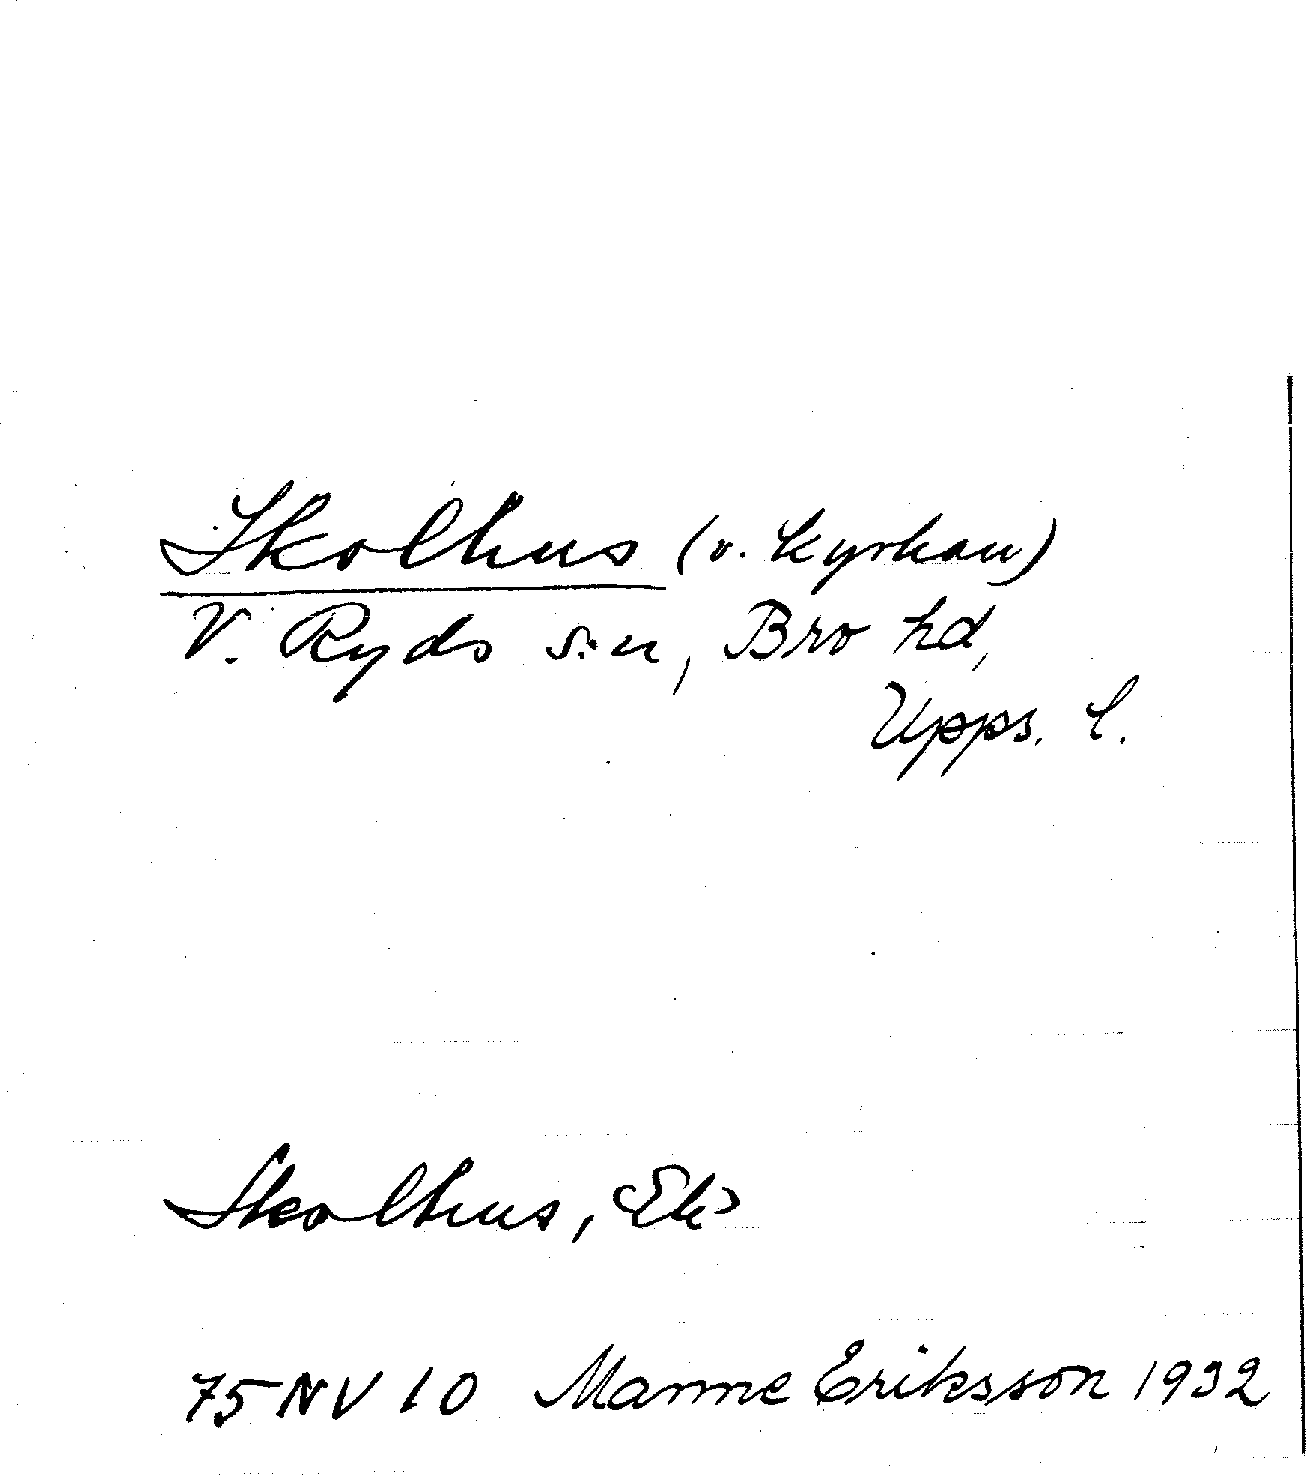 Skolhus (v. kyrkan)
V. Ryds sn, Bro hd,
Upps. l.
Skolhus, Ek
75 NV 10 Manne Eriksson 1932